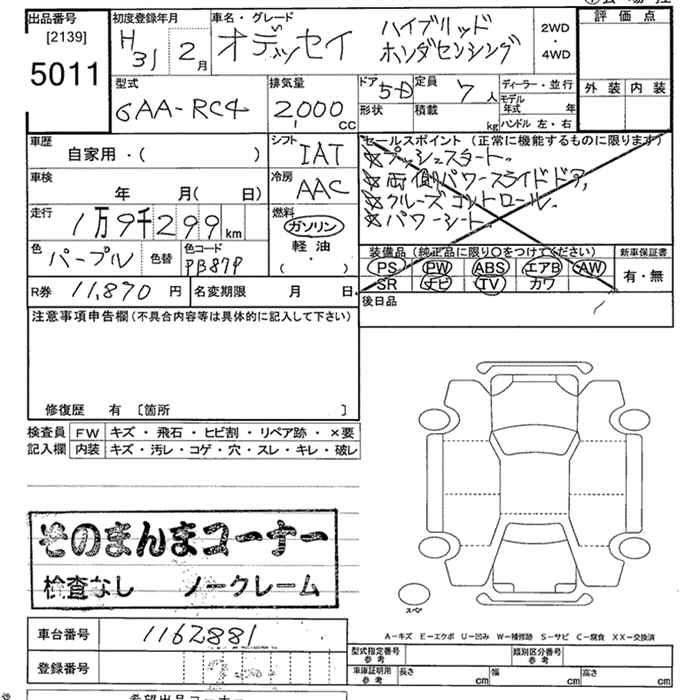 出品番号 初度登録年月 車名・グレード 評価点
[2139] H31 2月 オデッセイ ハイブリッド ホンダセンシング 2WD・4WD
5011 外装 内装
型式 排気量 ドア 5-D 定員 7人 ディーラー・並行
6AA-RC4 2000cc 形状 積載 kg モデル年式 年
ハンドル 左・右
車歴 シフト IAT セールスポイント (正常に機能するものに限ります)
自家用・( ) ☆プッシュスタート.
車検 冷房 AAC ☆両側パワースライドドア,
年 月( 日) ☆クルーズコントロール.
走行 1万9千299km 燃料 ガソリン ☆パワーシート.
軽油
( ・ )
色 パープル 色替 色コード PB87P 装備品 (純正品に限り○をつけてください) 新車保証書
PS PW ABS エアB AW 有・無
SR ナビ TV カワ
R券 11,870円 名変期限 月 日 後日品
注意事項申告欄 (不具合内容等は具体的に記入して下さい)
修復歴 有 〔箇所 〕
検査員 FW キズ・飛石・ヒビ割・リペア跡・×要
記入欄 内装 キズ・汚レ・コゲ・穴・スレ・キレ・破レ
そのまんまコーナー
検査なし ノークレーム
スペア
A-キズ E-エクボ U-凹み W-補修跡 S-サビ C-腐食 XX-交換済
車台番号 1162881
型式指定番号 参考 類別区分番号 参考
登録番号 車庫証明用 参考 長さ cm 幅 cm 高さ cm
希望出品コーナー